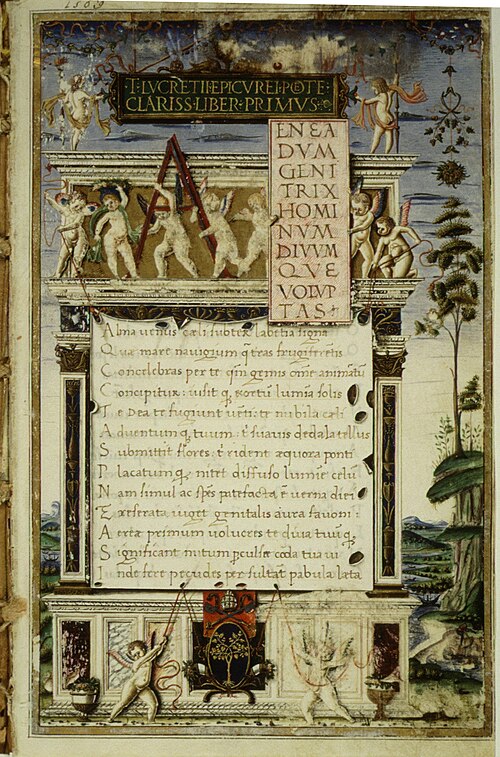 1503
T·LVCRETII·EPICVREI·POETE·
CLARISS·LIBER·PRIMVS·
A
ENEA
DVM
GENI
TRIX
HOMI
NVM
DIVVM
QVE
VOLVP
TAS
Alma uenus cæli subter labentia signa
Quæ mare nauigerum q̃ terras frugiferentis
Concelebras per te qm̃ genus om̃e animatũ
Concipitur: uisit q; exortũ lumina solis
Te Dea te fugiunt uẽti: te nubila cæli
Aduentum q; tuum: t̃ suauis dedala tellus
Submittit flores: t̃ rident æquora ponti
Placatum q; nitet diffuso lumine celũ
Nam simul ac sp̃es patefacta ẽ uerna diei
Exeserata uiget genitalis aura fauoni
Aereæ primum uolucres te diua tuũ q;
Significant initum pculsæ corda tua ui
Inde feræ pecudes per sultãt pabula læta